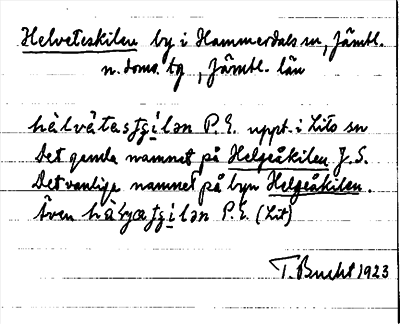 Helveteskilen by i Hammerdals sn, Jämtl.
n. doms. tg, Jämtl. län
P. E. uppt. i Lits sn
Det gamla namnet på Helgeåkilen J. S.
Det vanliga namnet på byn Helgeåkilen.
Även P. E. (Lit)
T. Bucht 1923